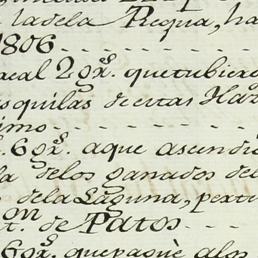 la dela Recua, ha
1806
real 2 grs. que tubiere
esquilas de estas Haz
imo
6 grs. a que ascendie
la delos ganados del
dela Laguna, perte
on
t. de Patos
6 grs. que paguè alos